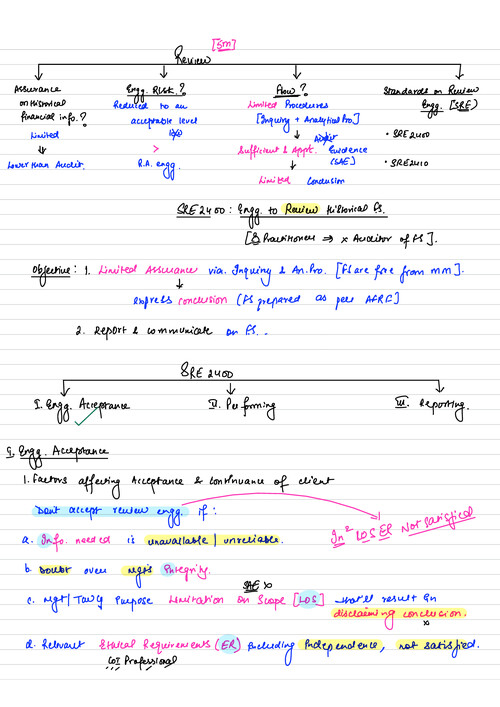 [5m]
Review
Assurance on Historical financial info.?
Limited
Lower than Audit.
Engg. Risk.?
Reduced to an acceptable level
>
R.A. engg.
How?
Limited Procedures
[Inquiry + Analytical Pro.]
Sufficient & Appt. Evidence
(SAE)
Limited Conclusion
Standards on Review Engg. [SRE]
• SRE 2400
• SRE 2410
SRE 2400: Engg. to Review Historical FS.
[Practitioner ⇒ x Auditor of FS].
Objective: 1. Limited Assurance via. Inquiry & An. Pro. [FS are free from mm].
express conclusion (FS prepared as per AFRF]
2. Report & communicate on FS..
SRE 2400
I. Engg. Acceptance
II. Performing
III. Reporting.
I. Engg. Acceptance
1. Factors affecting Acceptance & Continuance of client
Don't accept review engg. if:
a. Info. needed is unavailable | unreliable.
In² LOS ER Not Satisfied
b. Doubt over mgt's Integrity.
SAE x
c. Mgt | TCWG Purpose Limitation on Scope [LOS] that'll result in
disclaiming conclusion.
x
d. Relevant Ethical Requirements (ER) including Independence, not satisfied.
Professional